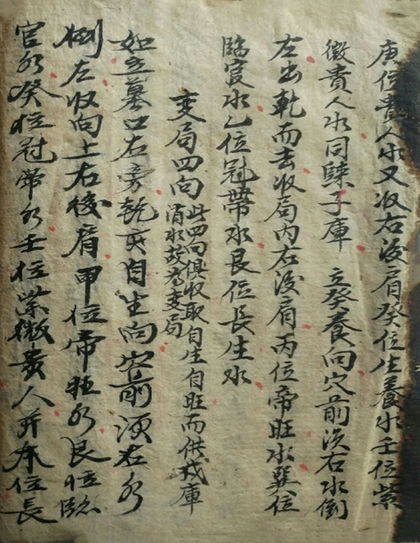 庚位貴人水又収右後肩癸位生養水壬位紫
微貴人水同歸子庫 立癸養向穴前須右水倒
左出乾而去収局内右後肩丙位帝旺水巽位
臨官水乙位冠帶水艮位長生水
变局四向 此四向俱収取自生自旺而借戌庫
消水故為变局
如立墓口右旁乾亥自生向穴前須右水
倒左収向上右後肩甲位帝旺水艮位臨
官水癸位冠帶水壬位紫微貴人并本位長